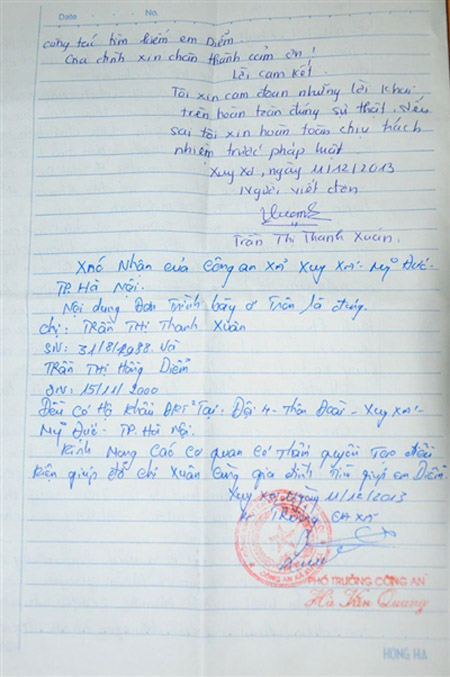 Date No.
công tác tìm kiếm em Diểm.
Gia đình xin chân thành cảm ơn!
Lời cam kết.
Tôi xin cam đoan những lời khai
trên hoàn toàn đúng sự thật. Nếu
sai tôi xin hoàn toàn chịu trách
nhiệm trước pháp luật
Xuy Xá, ngày 11/12/2013
Người viết đơn
Trần Thị Thanh Xuân.
Xác Nhận của Công an xã Xuy Xá - Mỹ Đức -
TP. Hà Nội.
Nội dung Đơn Trình bày ở Trên là đúng.
Chị: Trần Thị Thanh Xuân
SN: 31/8/1988 và
Trần Thị Hồng Diểm
SN: 15/11/2000
Đều có Hộ khẩu ĐKTT Tại: Đội 4 - Thôn Đoài - Xuy Xá -
Mỹ Đức - TP. Hà Nội.
Kính Mong Các cơ quan có Thẩm quyền Tạo điều
kiện giúp đỡ chị Xuân cùng gia đình tìm giúp em Diểm.
Xuy Xá, Ngày 11/12/2013
Trưởng CA xã
CÔNG AN XÃ XUY XÁ
PHÓ TRƯỞNG CÔNG AN
Hà Văn Quang
HONG HA